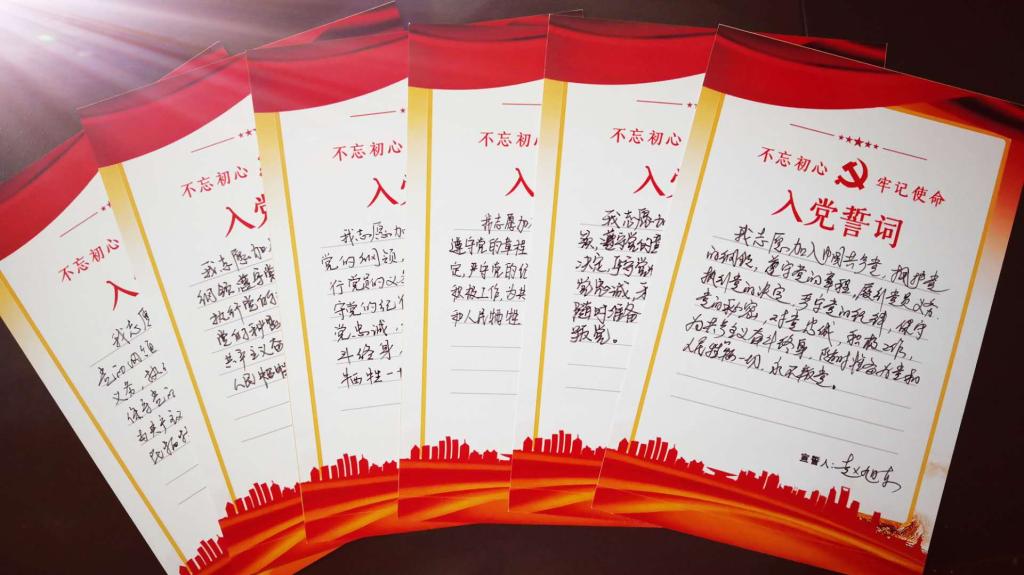 不忘初心
入
我志愿
党的纲领
义务，执
保守党的
为共产主义
民牺牲
不忘初心
入党
我志愿加
纲领 遵守
执行党的
党的秘密
共产主义奋
人民牺牲
不忘初心
入党
我志愿加
党的纲领，
行党员的义
守党的纪律
党忠诚，
斗终身，
牺牲一
不忘初心
入
我志愿加
遵守党的章程
定，严守党的纪
积极工作，为共
和人民牺牲
不忘初心
入
我志愿加
领，遵守党的章
决定，严守党
党忠诚，积
随时准备
叛党。
不忘初心 牢记使命
入党誓词
我志愿加入中国共产党，拥护党
的纲领，遵守党的章程，履行党员义务，
执行党的决定，严守党的纪律，保守
党的秘密，对党忠诚，积极工作，
为共产主义奋斗终身，随时准备为党和
人民牺牲一切，永不叛党。
宣誓人：赵旭东